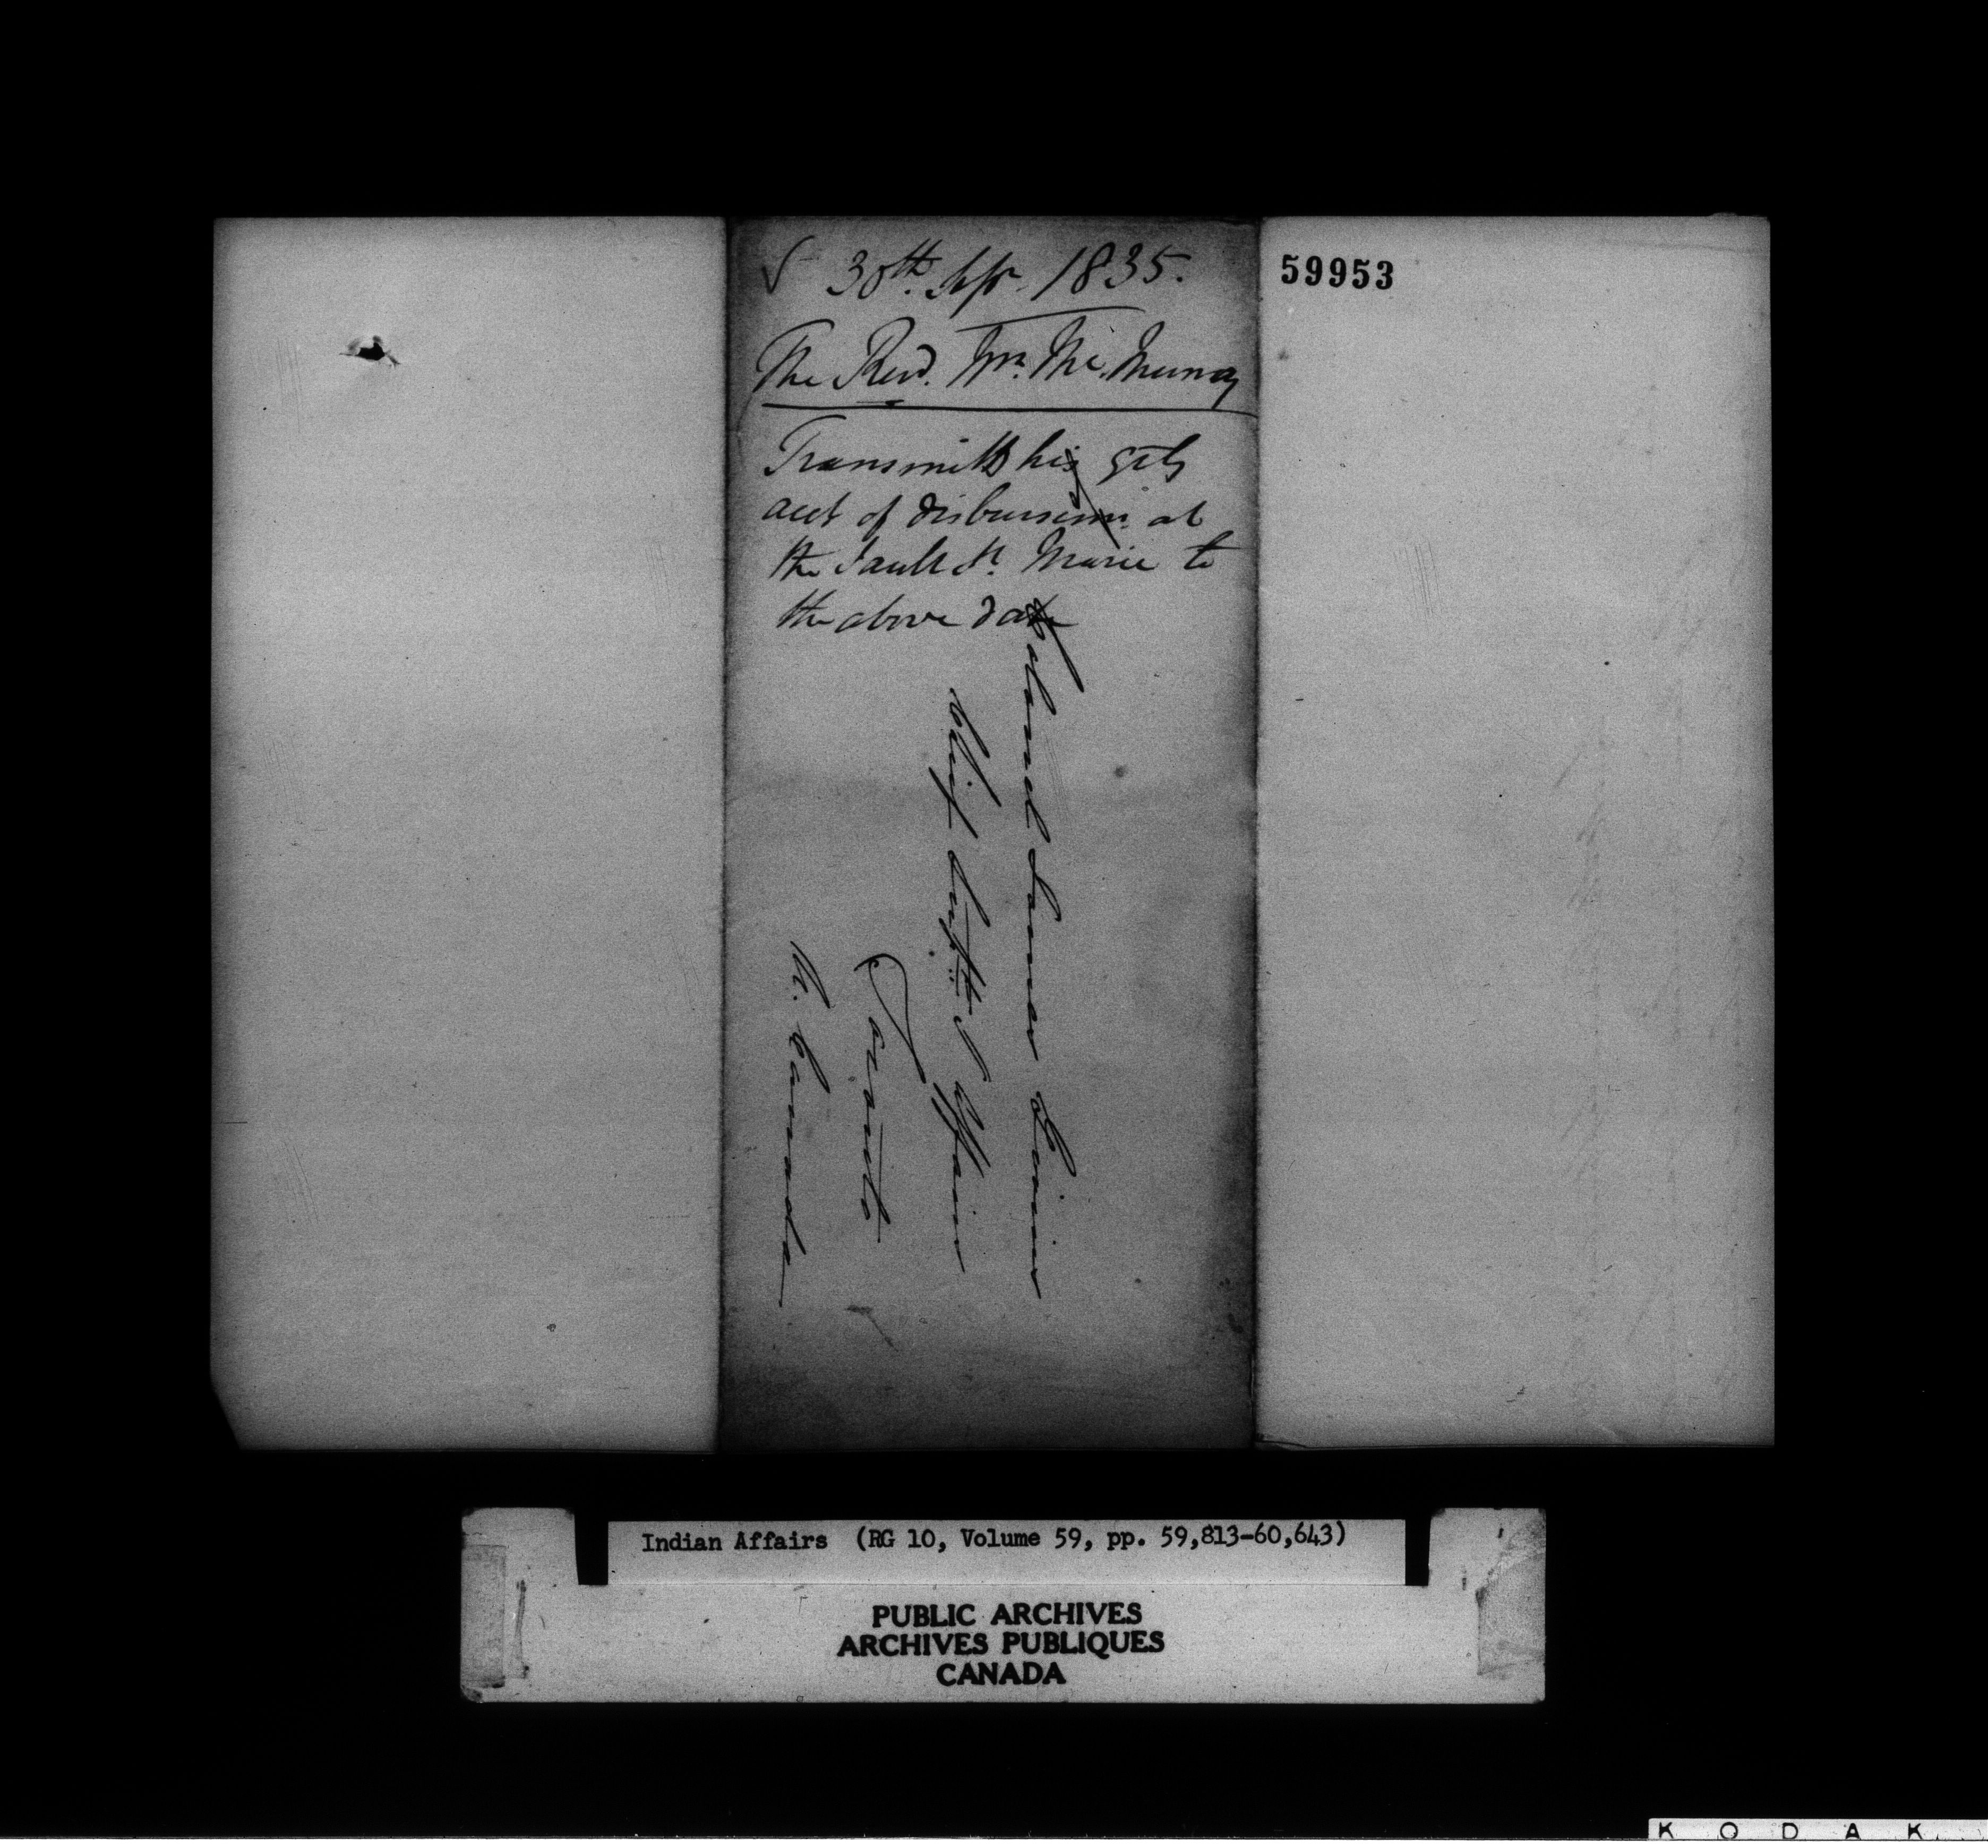 30th. Sepr. 1835.
The Revd. Wm. Mc.Murray
Transmitts his qtly
acct of disbursemt. at
the Sault St. Marie to
the above date
Colonel James Givins
Chief Supt. I Affairs
Toronto
U. Canada
59953
Indian Affairs (RG 10, Volume 59, pp. 59,813-60,643)
PUBLIC ARCHIVES
ARCHIVES PUBLIQUES
CANADA
KODAK